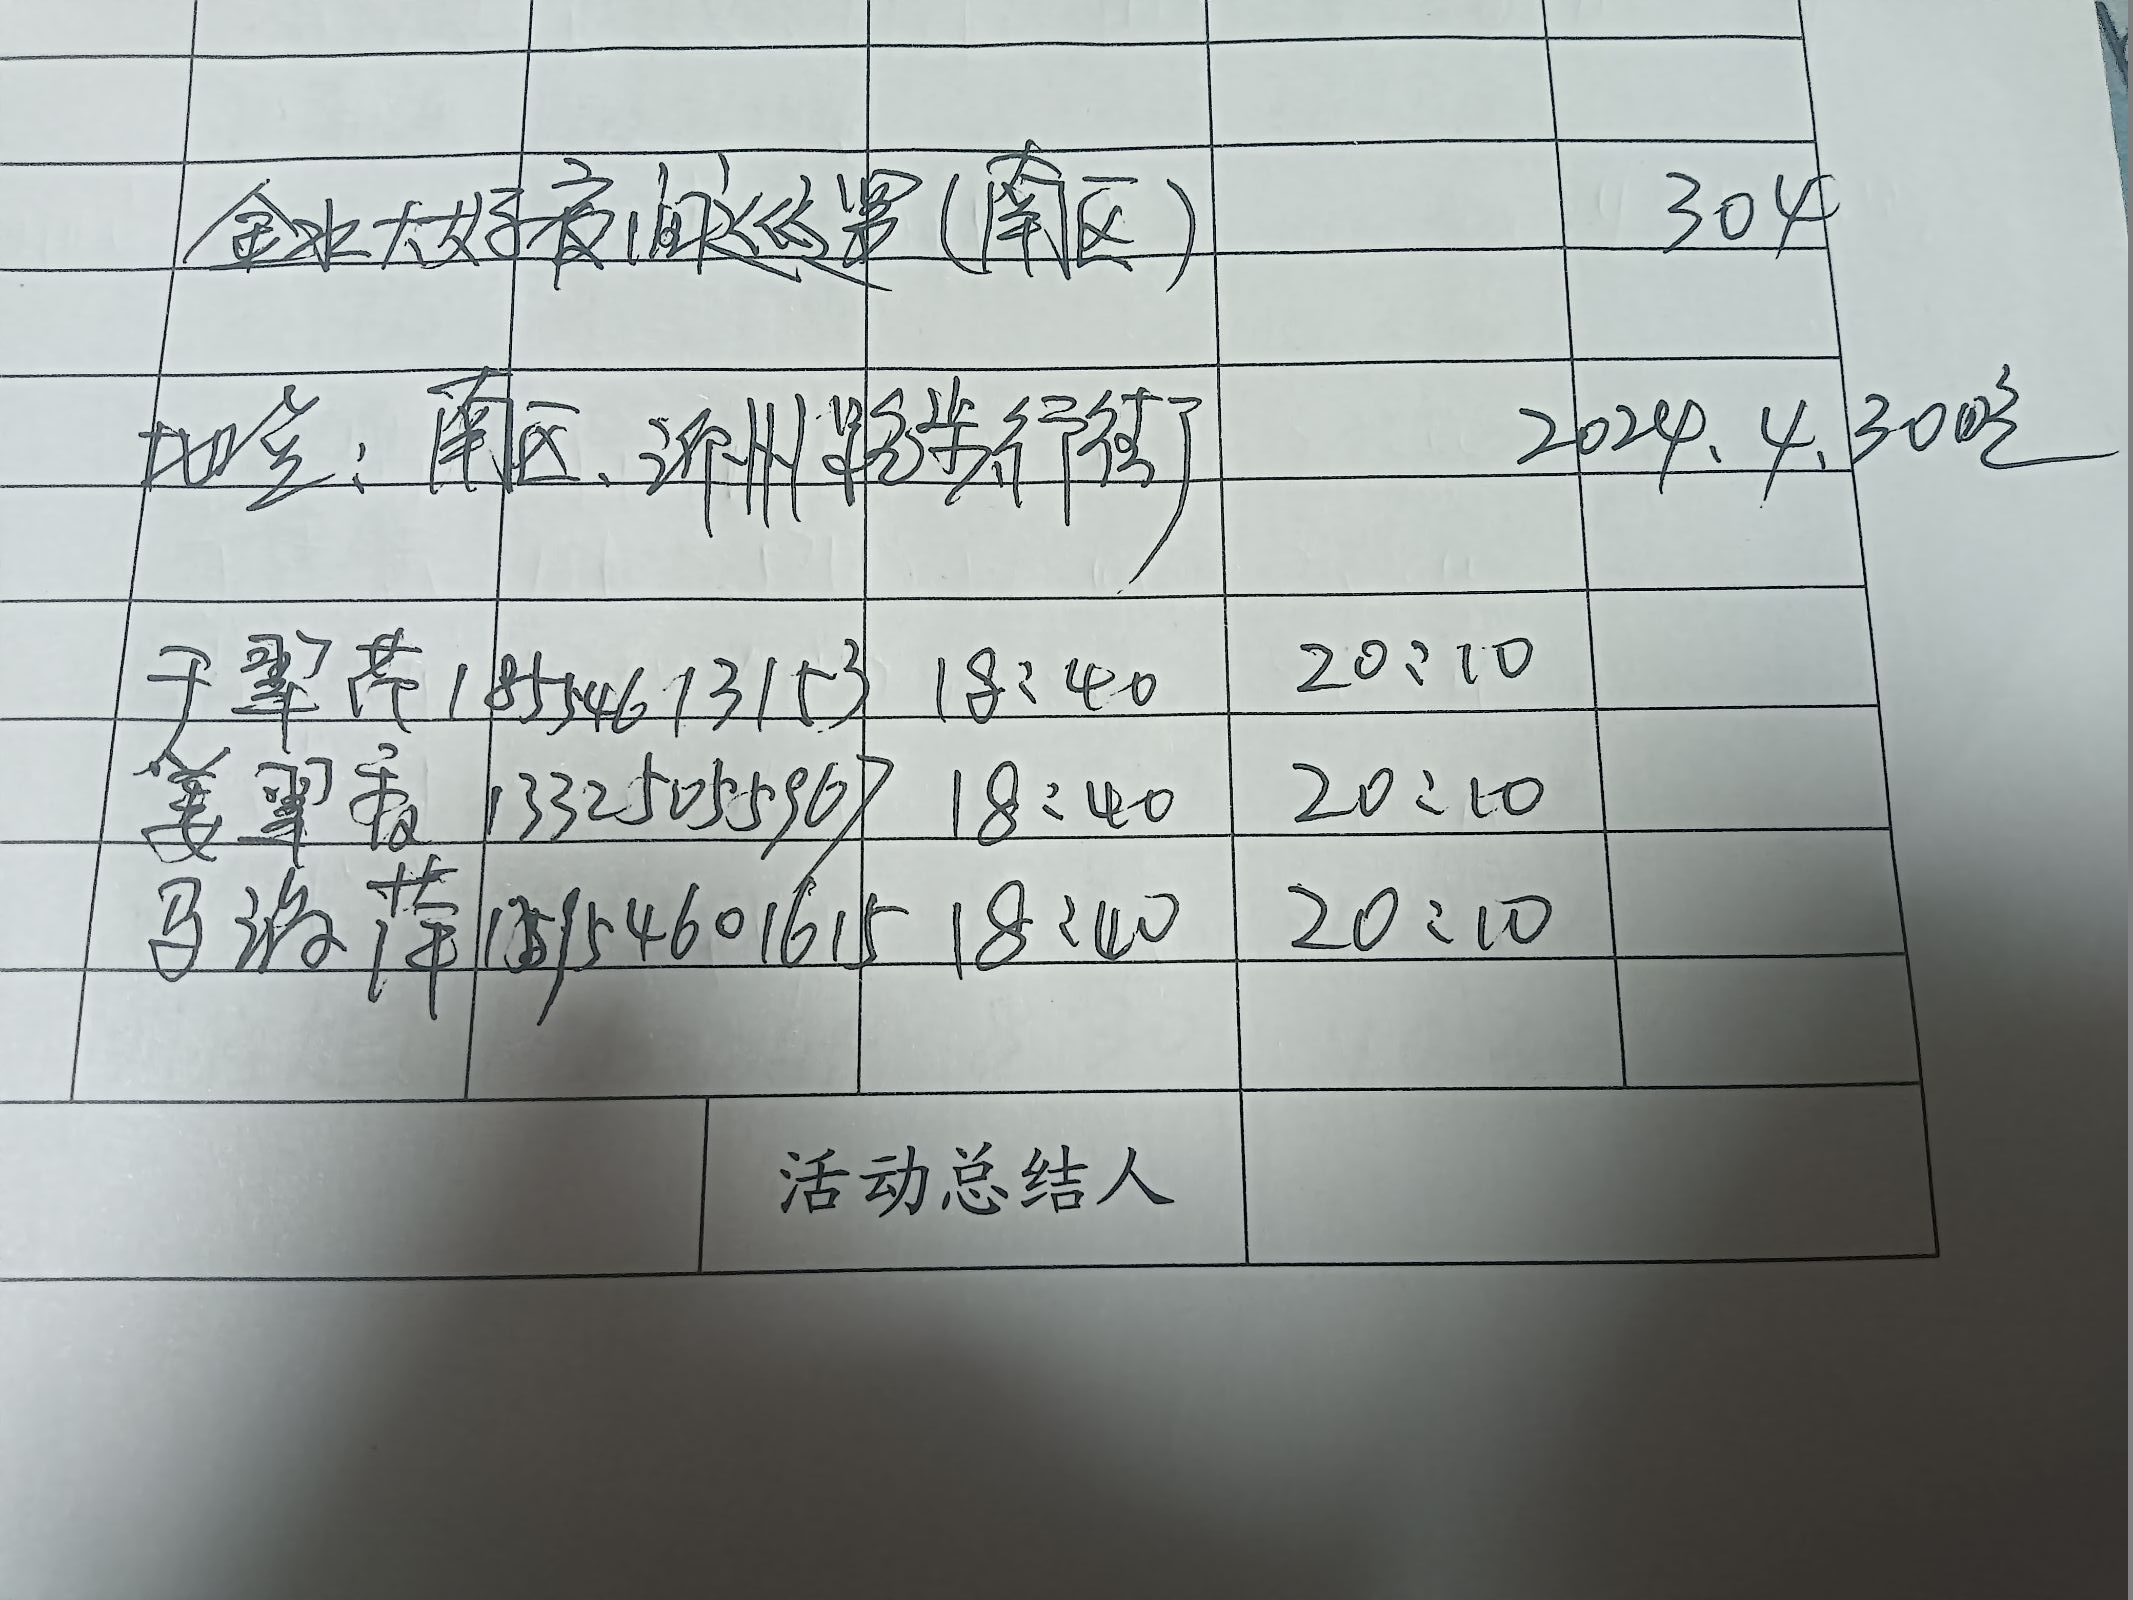 金水大好夜间巡逻(南区) 304
地点:南区、沂州路步行街 2024.4.30晚
于翠芹 18554673153 18:40 20:10
姜翠香 13325055967 18:40 20:10
马 萍 18:40 20:10
活动总结人